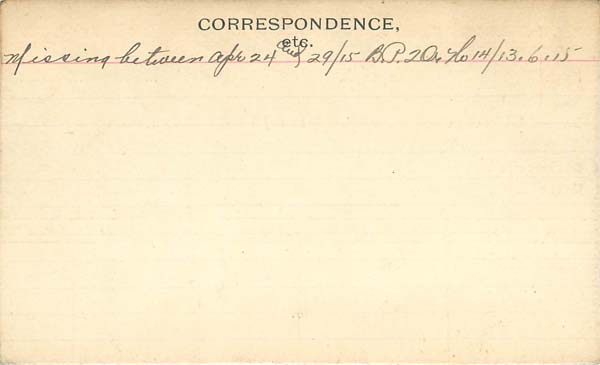 CORRESPONDENCE,
etc.
Missing between Apr 24 and 29/15 B.P. 2 O. No 14/13.6.15